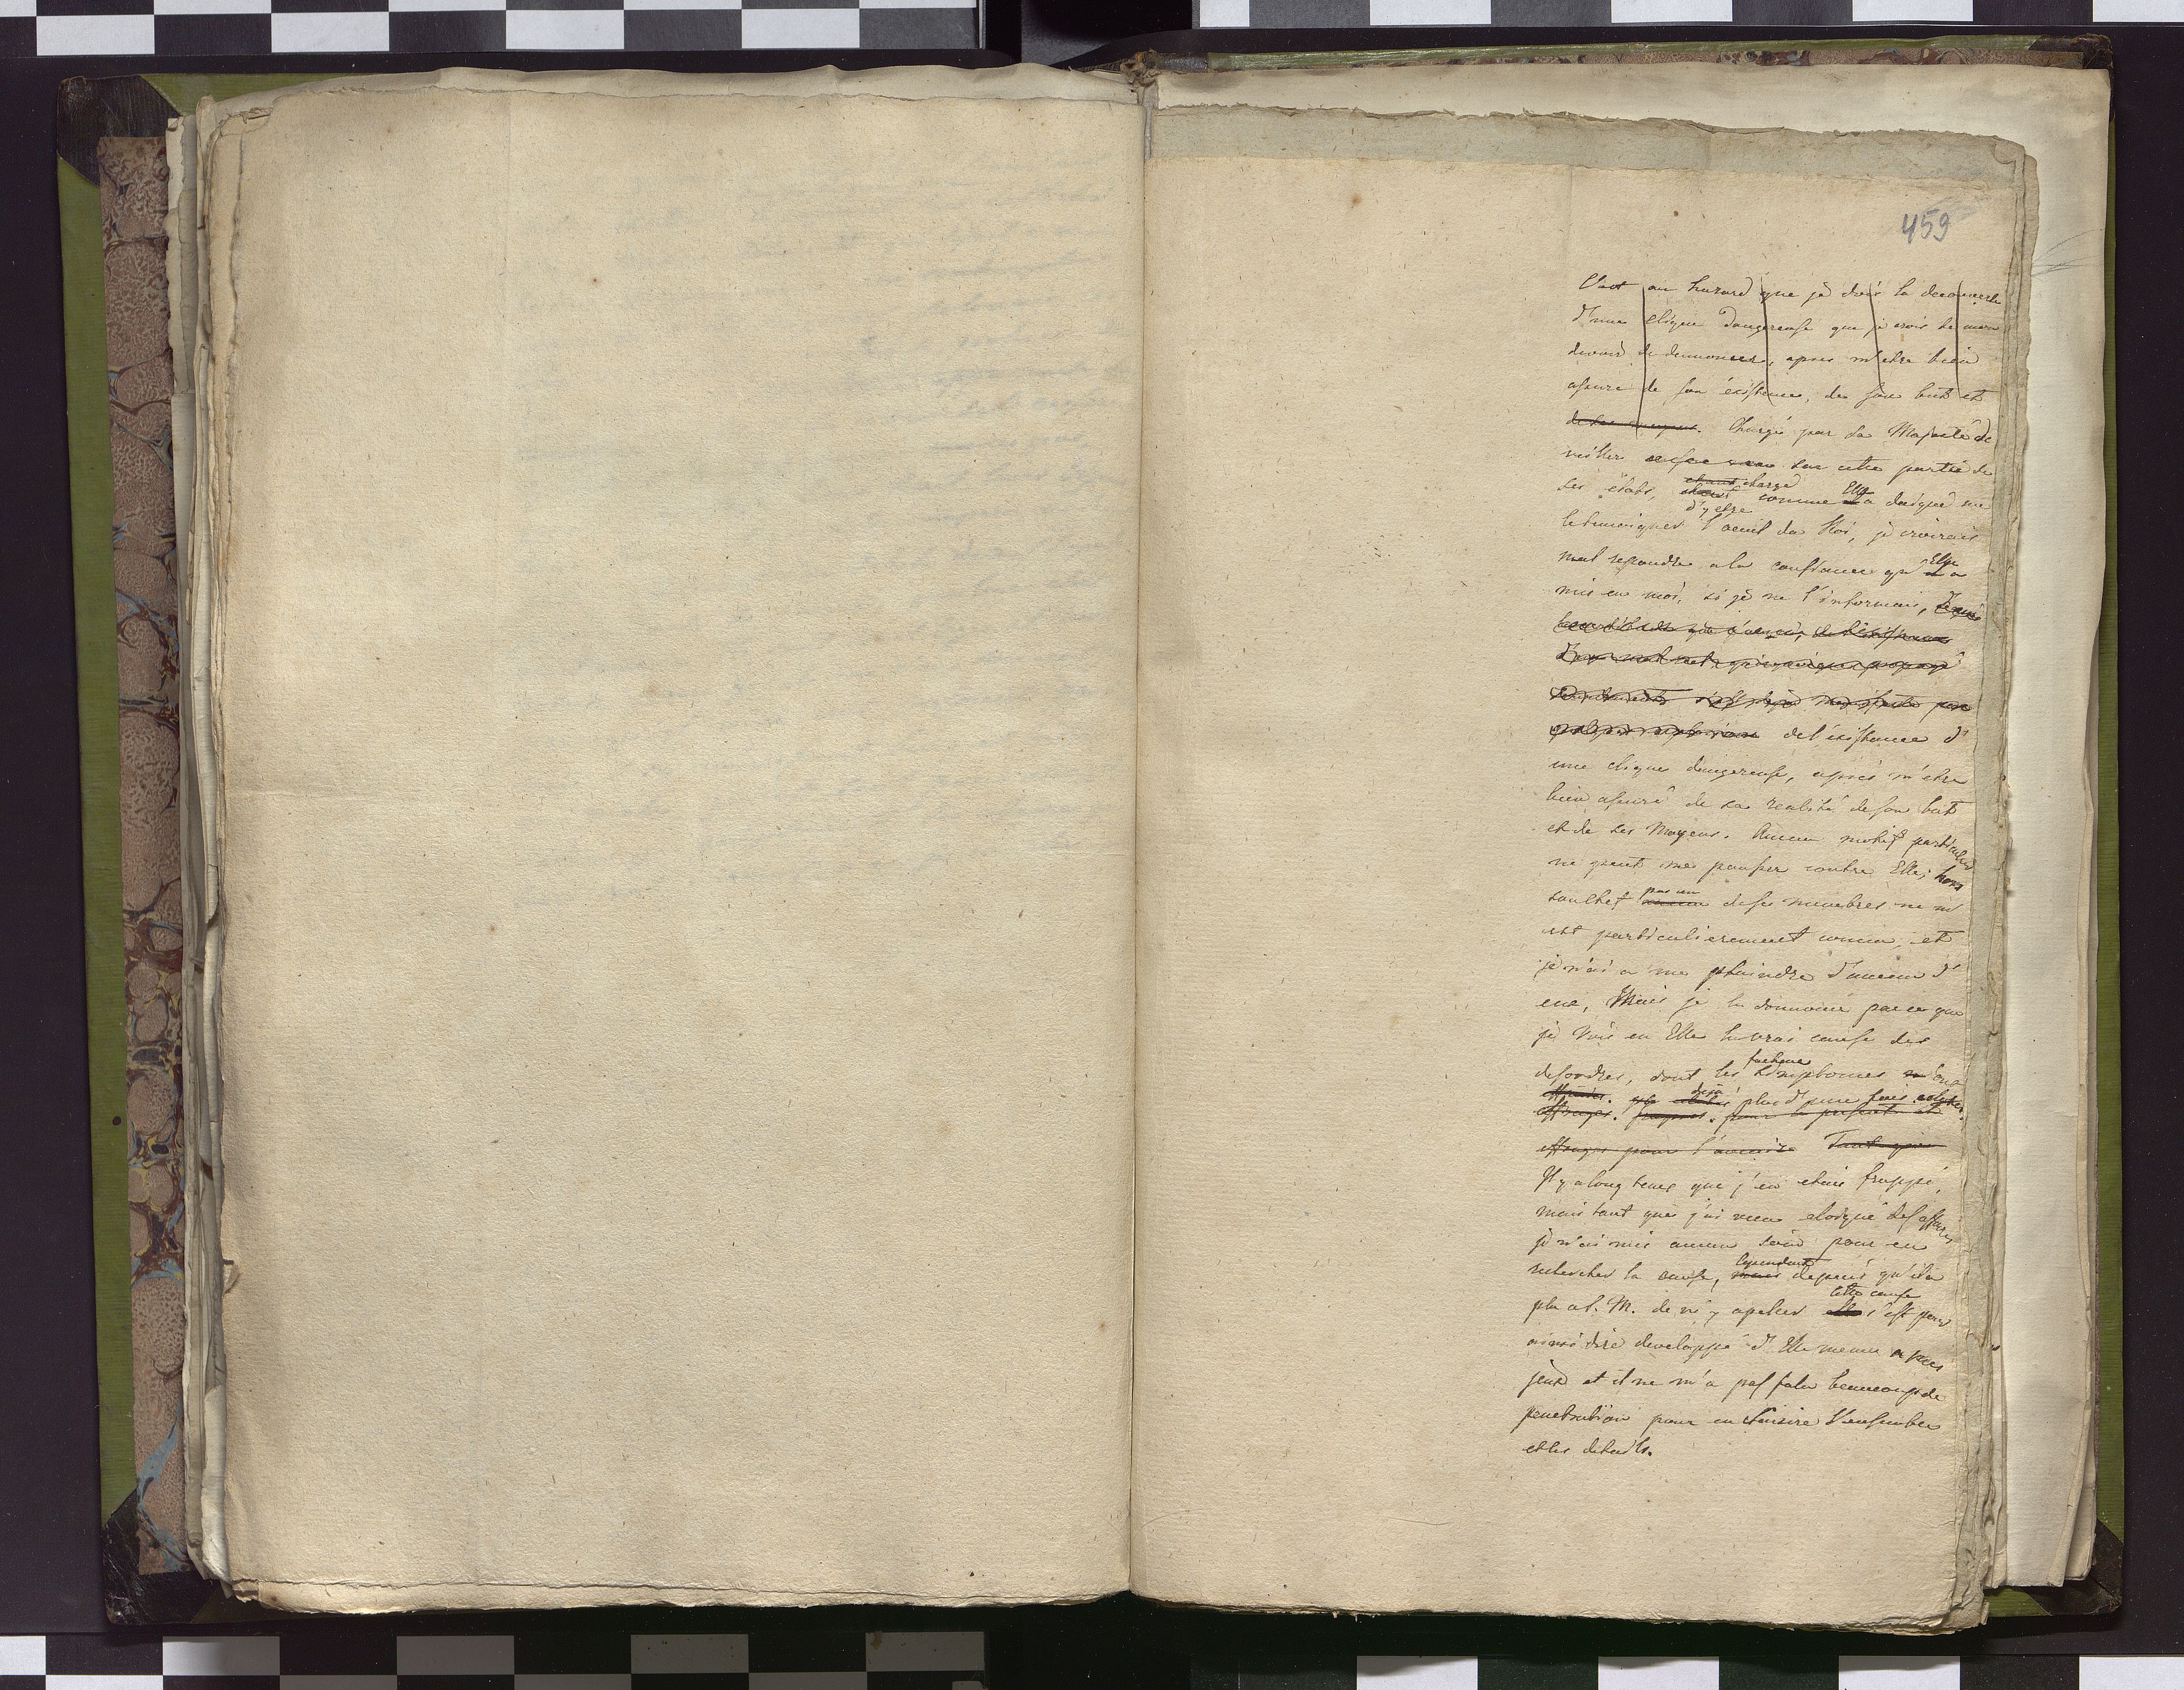 459
C'est au hazard que je dois la decouverte
d'une clique dangereuse que je crois de mon
devoir de denoncer, apres m'etre bien
assuré de son éxistence, de son but et
de ses moyens. Chargé par Sa Majesté de
veiller sur cette partie de
etant chargé
ses états, comme Elle a daigné me
d'y etre
le temoigner l'oeuil du Roi, je croirais
Elle
mal repondre a la confiance qu' a
mis en moi, si je ne l'informais,
de l'éxistance d'
une clique dangereuse, aprés m'etre
bien assuré de sa realité de son but
et de ses Moyens. Aucun motif particulier
ne peut me pousser contre Elle; hors
pas un
son chef aucun de ses membres ne m'
est particulierement connu, et
je n'ai a me plaindre d'aucun d'
eux, Mais je la dennonce parce que
je vois en Elle la vrai cause des
facheux
desordres, dont les simptomes ont
deja plus d'une fois
effrayer pour l'avenir Tant que
Il y a long tems que j'en etais frappé,
mais tant que j'ai vecu eloigné des affaires
je n'ai mis aucun soin pour en
Cependant
rechercher la cause, mais depuis qu'il a
cette cause
plu a S. M. de m'y apeller elle s'est pour
ainsi dire developpé d'Elle meme a mes
jeux et il ne m'a pas falu beaucoup de
penetration pour en saisire l'ensemble
et les details.